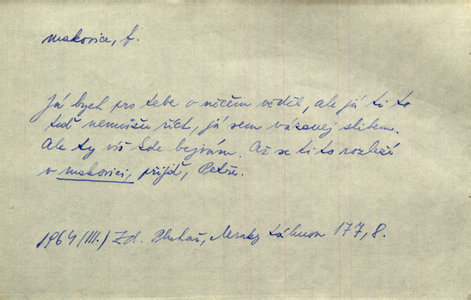 makovice, f.
Já bych pro tebe o něčem věděl, ale já ti to
teď nemůžu říct, já sem vázanej slibem.
Ale ty víš kde bejvám. Až se ti to rozleží
v makovici, přijď, Petře.
1964/III./ Zd. Pluhař, 177, 8.